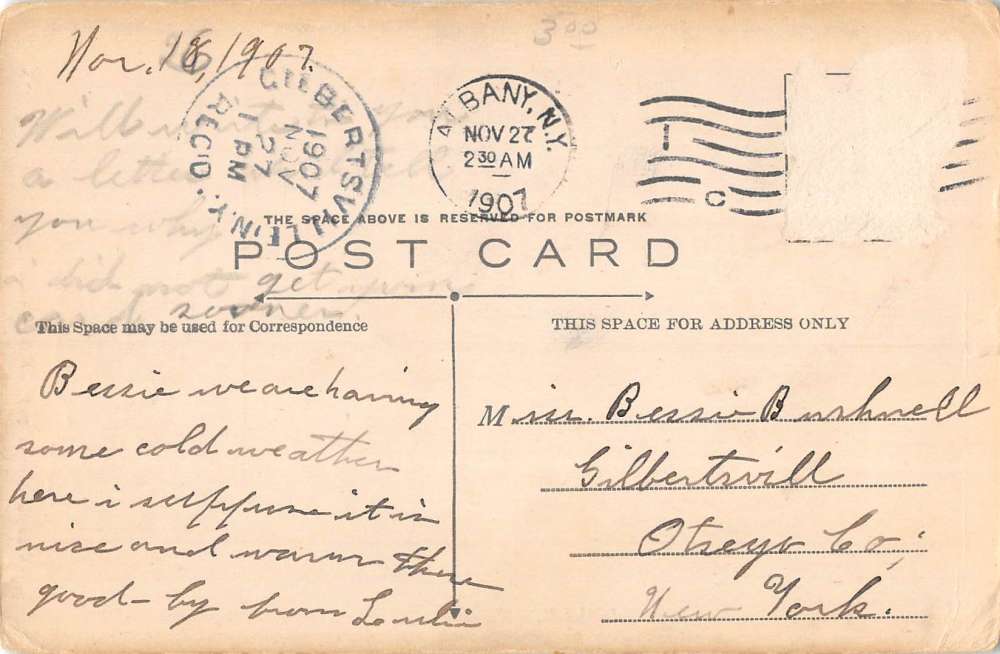 3.00
Nov. 18, 1907.
26
GILBERTSVILLE, N.Y.
1907
NOV
27
1 PM
REC'D.
ALBANY, N.Y.
NOV 27
2 30 AM
1907
1
C
Will write you
a letter tell
you why
i did not get your
card sooner
THE SPACE ABOVE IS RESERVED FOR POSTMARK
POST CARD
This Space may be used for Correspondence
THIS SPACE FOR ADDRESS ONLY
Bessie we are having
some cold weather
here i suppose it is
nise and warm there
good-by from
Miss. Bessie Bushnell
Gilbertsvill
Otsego Co;
New York.